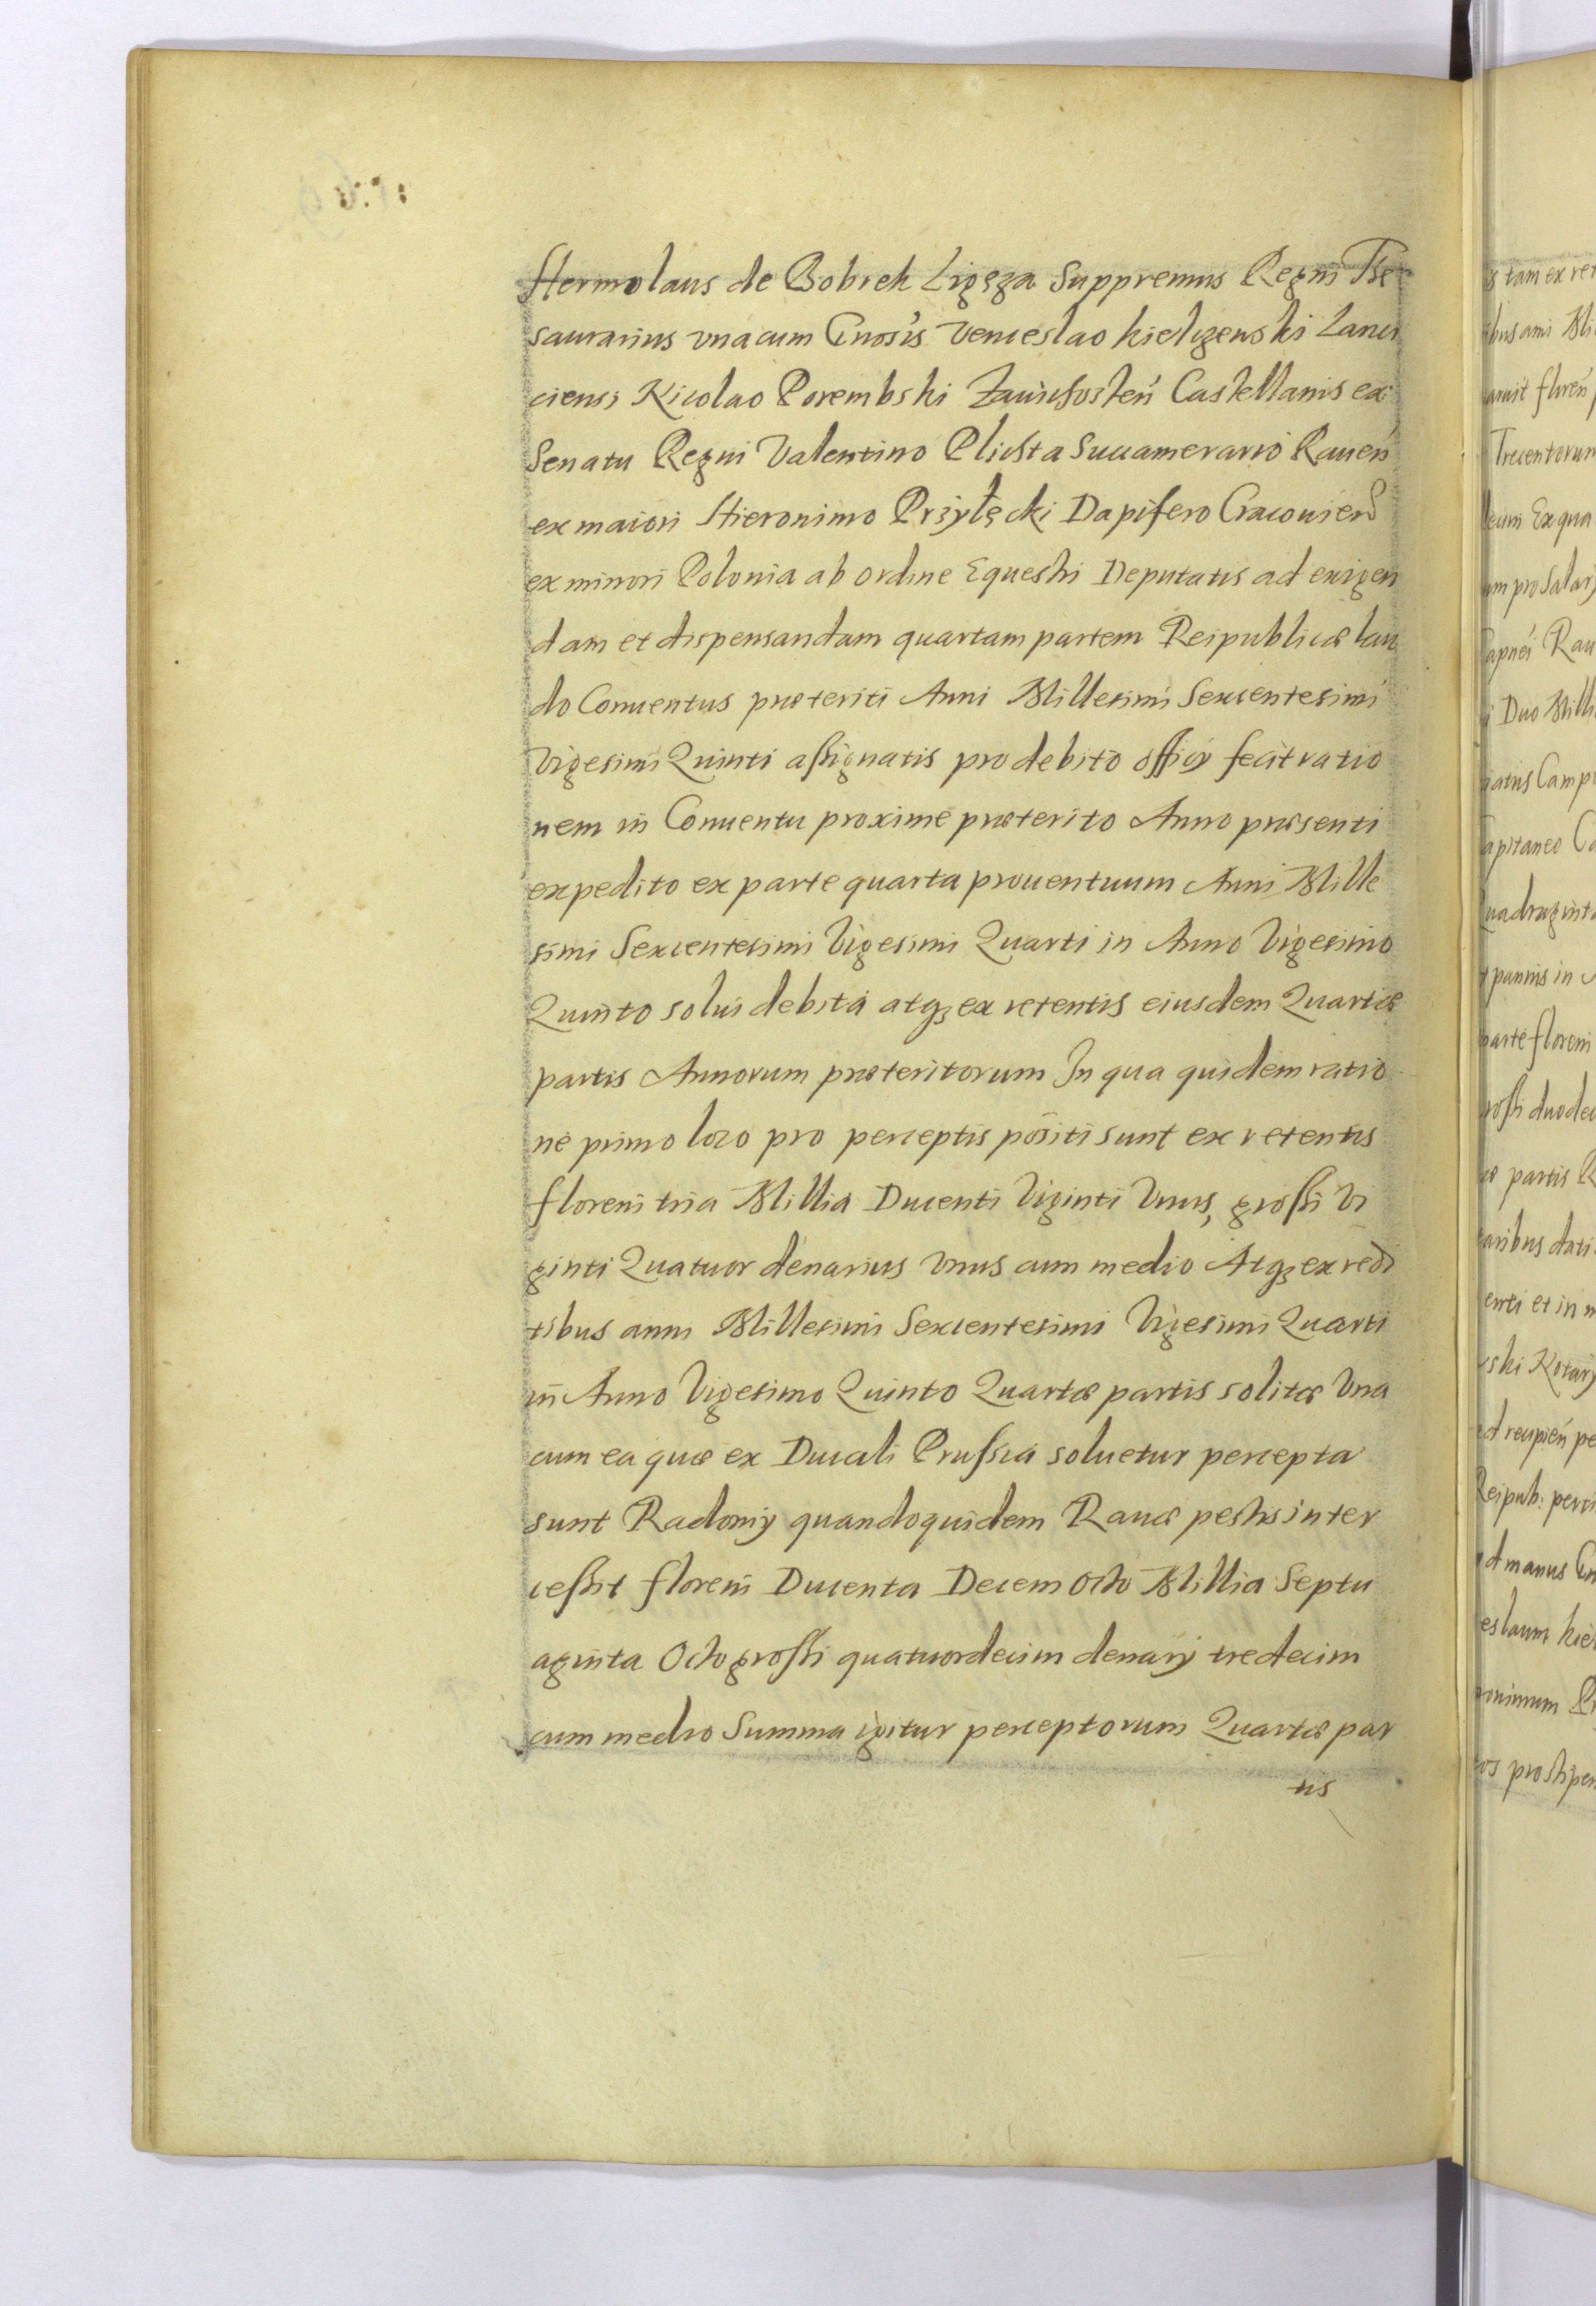 Hermolaus de Bobrek Ligęza Suppremus Regni The
saurarius vna cum Gnosis Venceslao Kielczewski Lanci
ciensi Nicolao Porembski Zawichosten Castellanis ex
Senatu Regni Valentino Plichta Succamerario Rauen
ex maiori Hieronimo Przyłęcki Dapifero Cracouien
ex minori Polonia ab ordine Equestri Deputatis ad exigen
dam et dispensandam quartam partem Reipublicæ lau
do Conuentus præteriti Anni Millesimi Sexcentesimi
Vigesimi Quinti assignatis pro debito officy fecit ratio
nem in Conuentu proxime præterito Anno præsenti
expedito ex parte quarta prouentuum Anni Mille
simi Sexcentesimi Vigesimi Quarti in Anno Vigesimo
Quinto solui debita atq ex retentis eiusdem Quartæ
partis Annorum præteritorum In qua quidem ratio
ne primo loco pro perceptis positi sunt ex retentis
floreni tria Millia Ducenti Viginti Vnus, grossi Vi
ginti Quatuor denarius Vnus cum medio Atq ex redi
tibus anni Millesimi Sexcentesimi Vigesimi Quarti
in Anno Vigesimo Quinto Quartæ partis solitæ Vna
cum ea quæ ex Ducali Prussia soluetur percepta
sunt Radomij quandoquidem Rauæ pestis inter
cessit floreni Ducenta Decem Octo Millia Septu
aginta Octo grossi quatuordecim denarij tredecim
cum medio Summa igitur perceptorum Quartæ par
tis